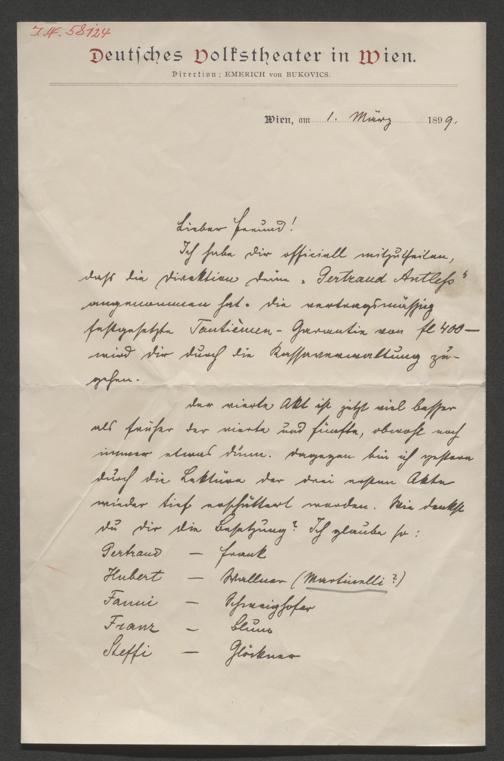 I.N. 58124
Deutsches Volkstheater in Wien.
Direction: EMERICH von BUKOVICS.
Wien, am 1. März 1899.
Lieber Freund!
Ich habe dir officiell mitzutheilen,
dass die Direktion deine „Gertraud Antless“
angenommen hat. Die vertragsmässig
festgesetzte Tantièmen-Garantie von fl 400—
wird dir durch die Kassaverwaltung zu-
gehen.
Der vierte Akt ist jetzt viel besser
als früher der vierte und fünfte, obwohl noch
immer etwas dünn. Dagegen bin ich gestern
durch die Lektüre der drei ersten Akte
wieder tief erschüttert worden. Wie denkst
du dir die Besetzung? Ich glaube so:
Gertraud — Frank
Hubert — Wallner (Martinelli?)
Fanni — Schweighofer
Franz — Blum
Steffi — Glöckner